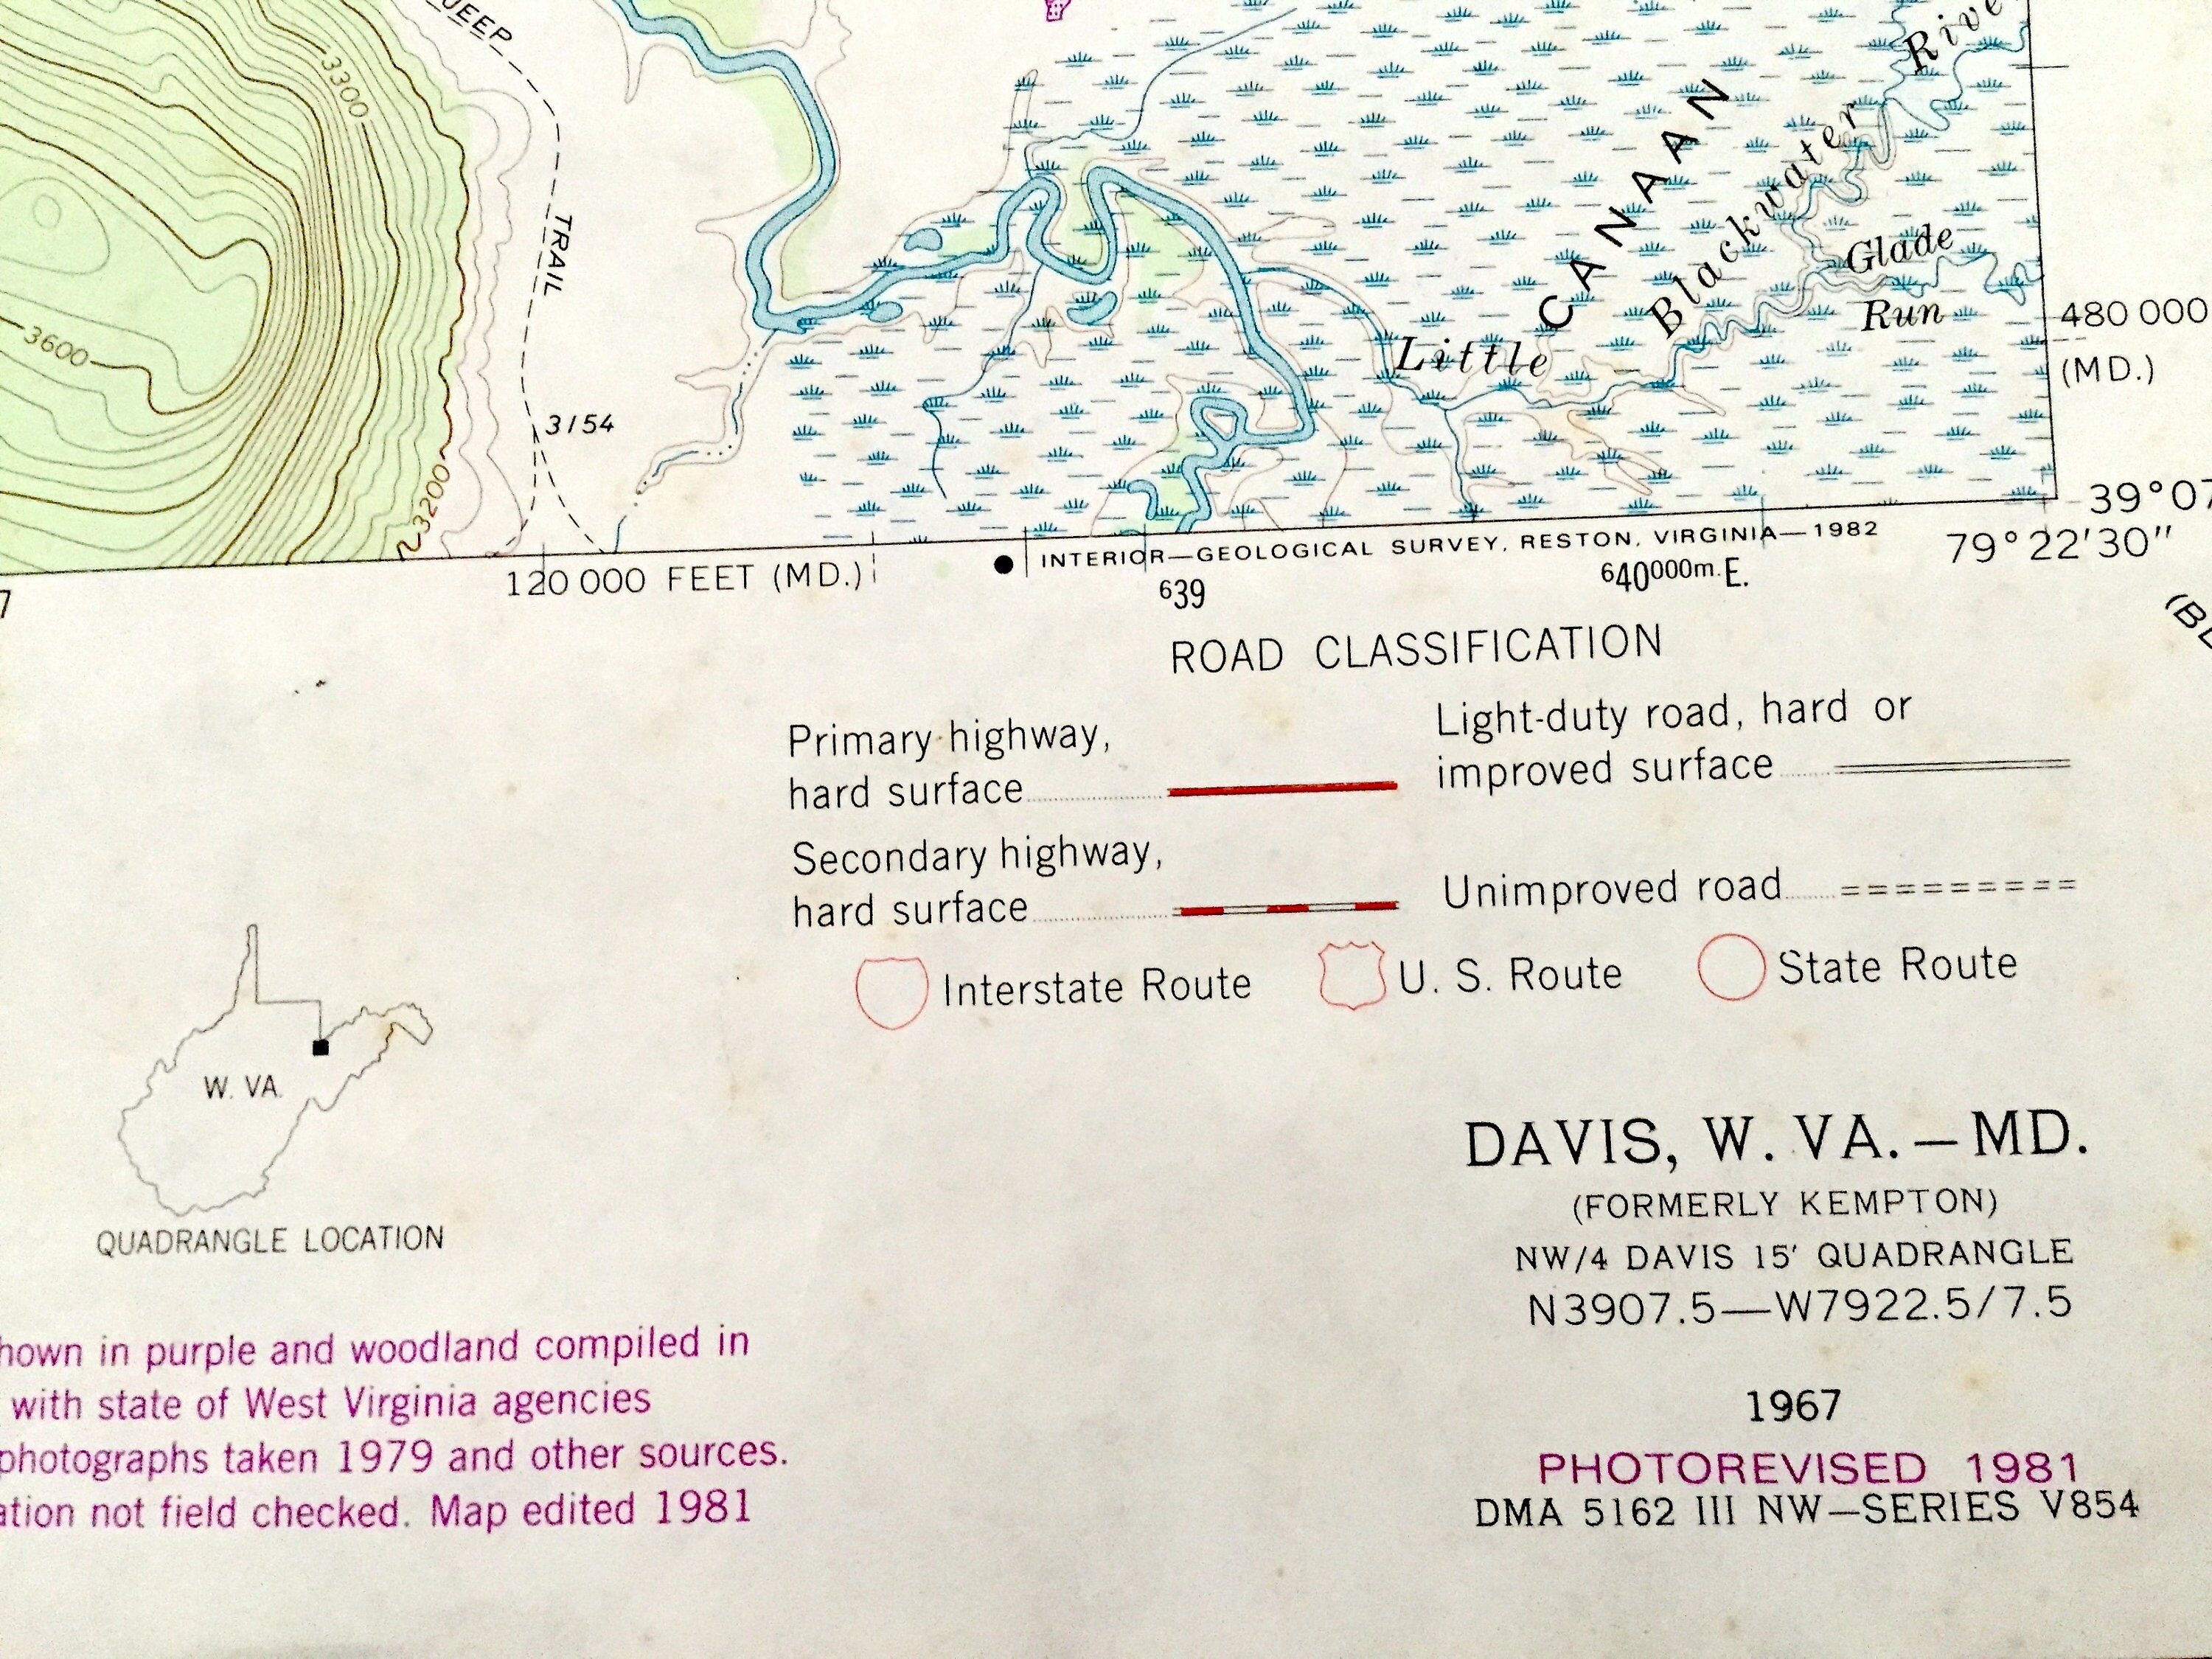 JEEP
3300
TRAIL
3600
3154
3200
CANAAN
Little Blackwater River
Glade
Run
480 000
(MD.)
39°07
79°22'30"
7
120 000 FEET (MD.)
INTERIOR—GEOLOGICAL SURVEY, RESTON, VIRGINIA—1982
639
640000m.E.
ROAD CLASSIFICATION
Primary highway,
hard surface
Light-duty road, hard or
improved surface
Secondary highway,
hard surface
Unimproved road
Interstate Route
U. S. Route
State Route
W. VA.
QUADRANGLE LOCATION
DAVIS, W. VA.—MD.
(FORMERLY KEMPTON)
NW/4 DAVIS 15' QUADRANGLE
N3907.5—W7922.5/7.5
1967
PHOTOREVISED 1981
DMA 5162 III NW—SERIES V854
in purple and woodland compiled in
with state of West Virginia agencies
photographs taken 1979 and other sources.
not field checked. Map edited 1981